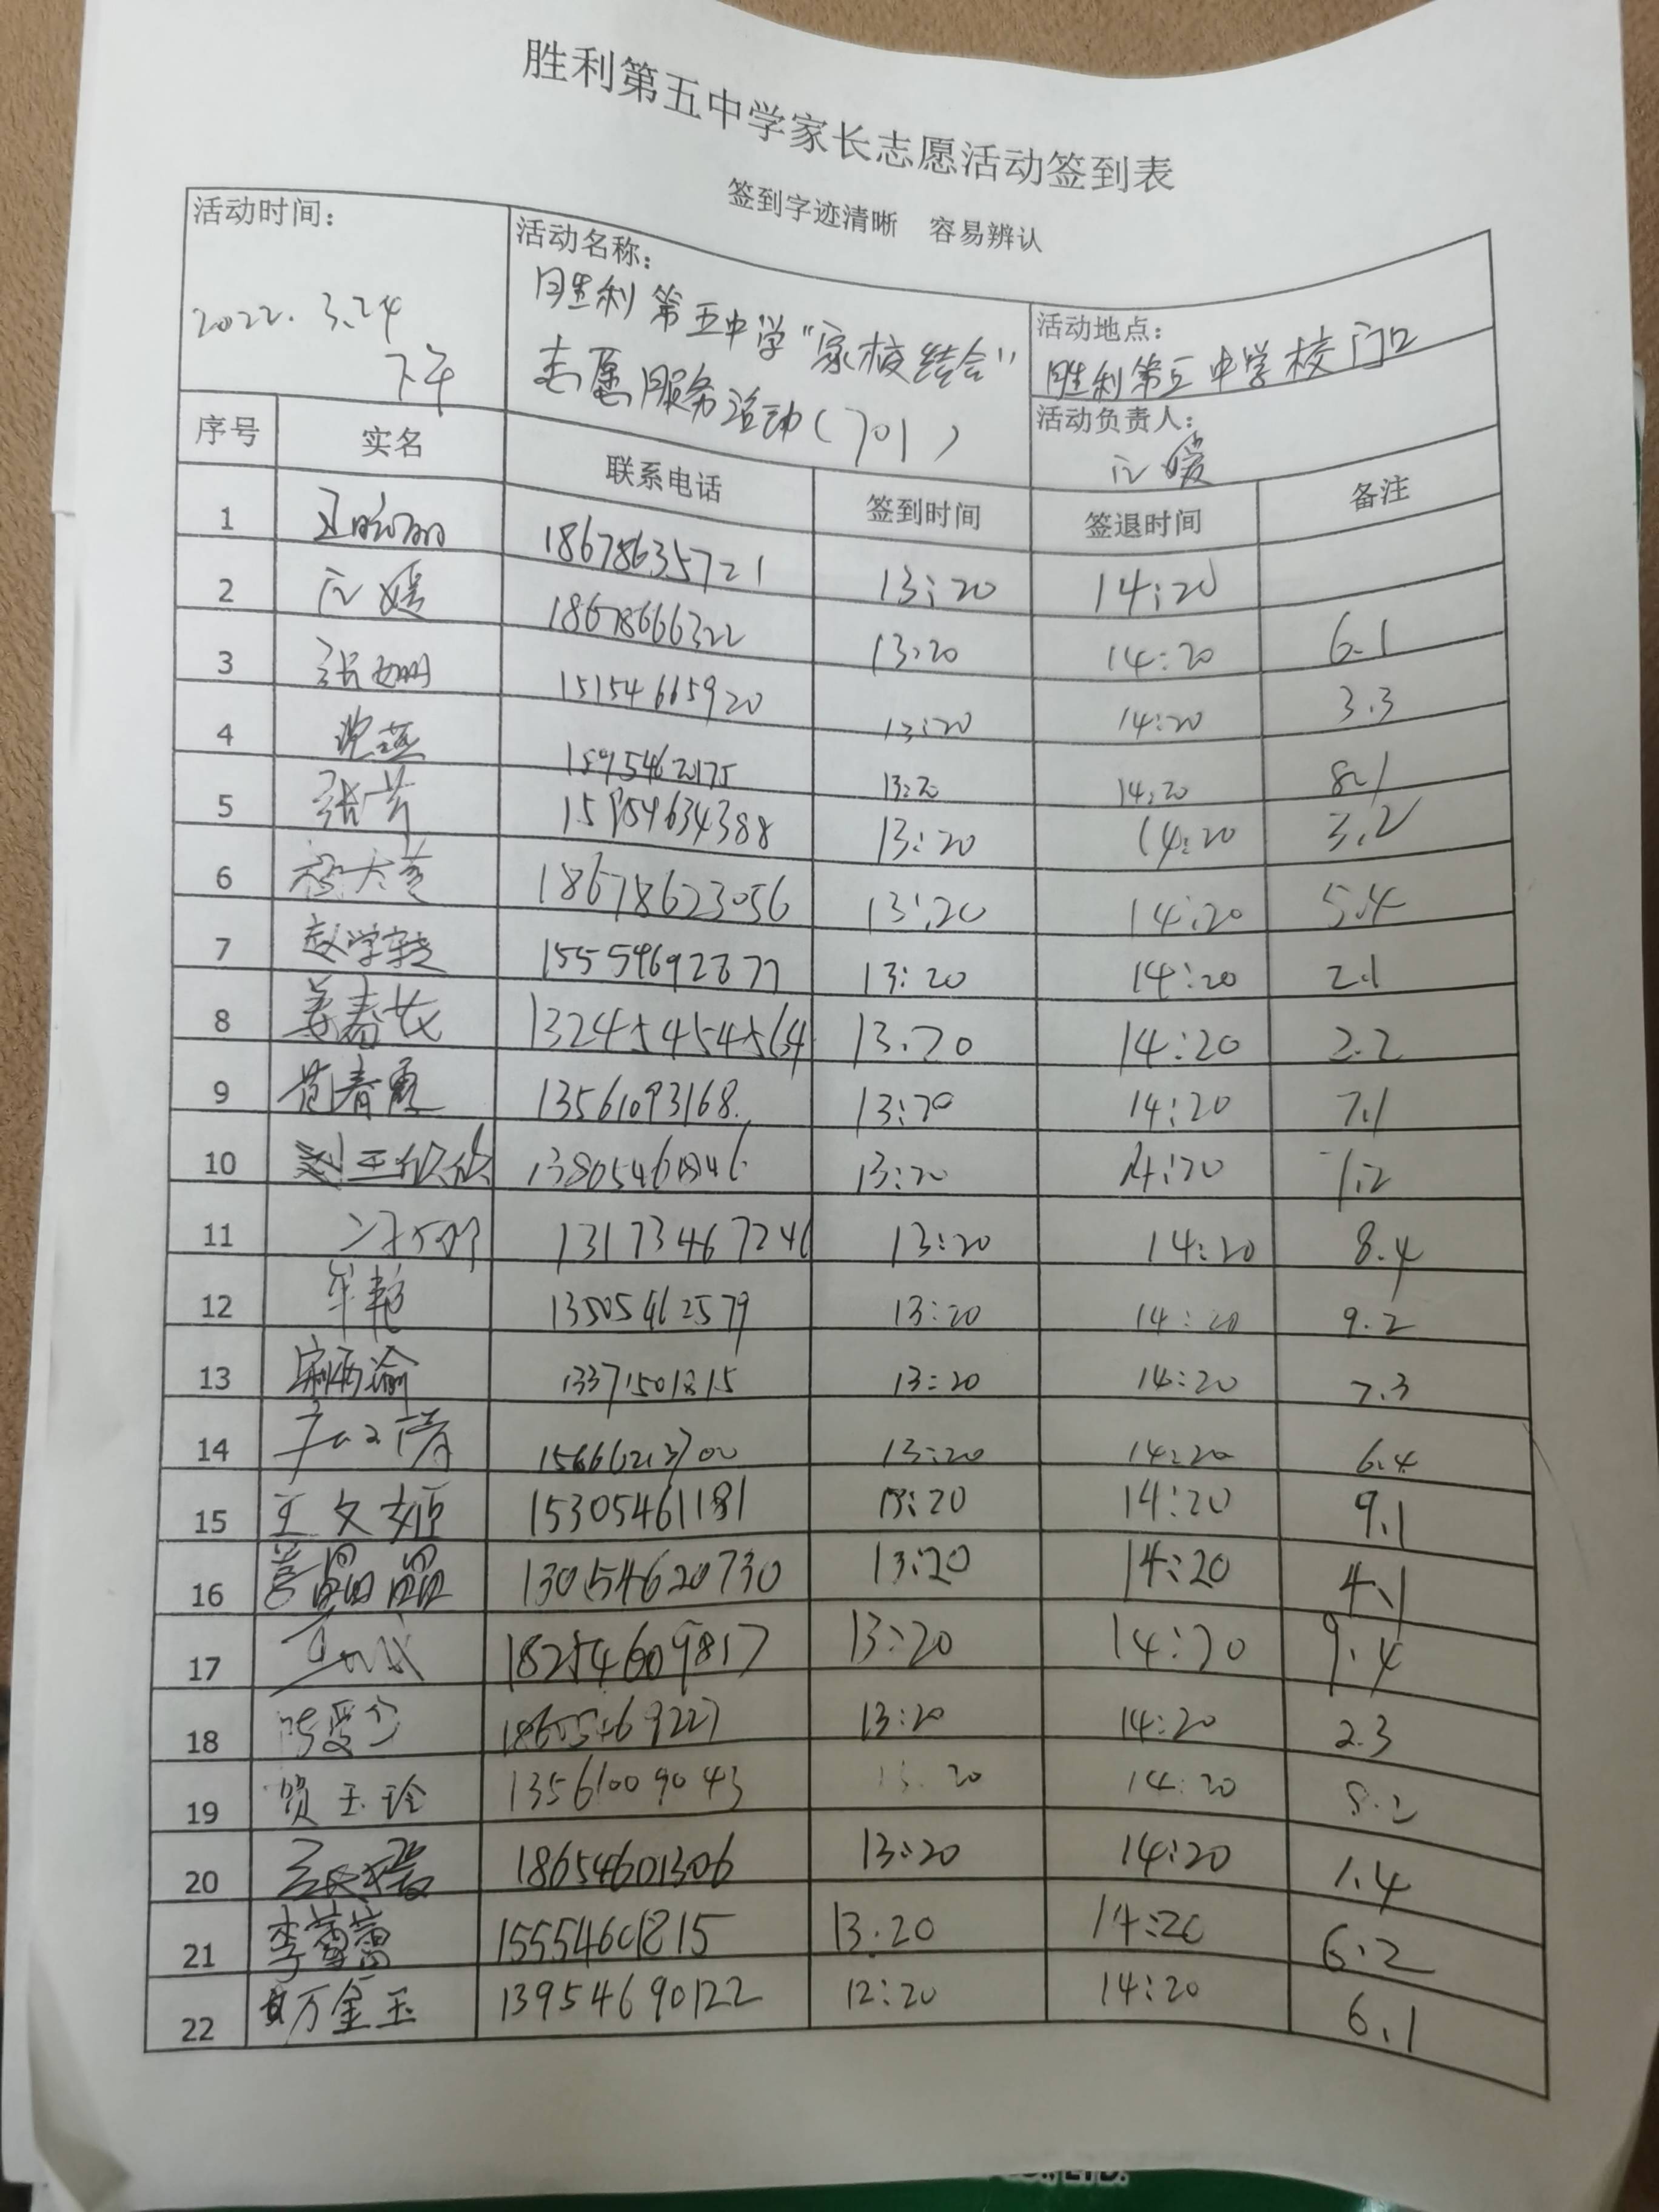 胜利第五中学家长志愿活动签到表
签到字迹清晰 容易辨认
活动时间：
2022.3.24
下午
活动名称：
胜利第五中学“家校结合”
志愿服务活动（701）
活动地点：
胜利第五中学校门口
活动负责人：
应媛
序号 实名 联系电话 签到时间 签退时间 备注
1 18678635721 13:20 14:20
2 应媛 18678666322 13:20 14:20 6.1
3 张姗 15154665920 13:20 14:20 3.3
4 13:20 14:20 8.1
5 张芳 15954634388 13:20 14:20 3.2
6 18678623056 13:20 14:20 5.4
7 13:20 14:20 2.1
8 姜春女 13:20 14:20 2.2
9 范春霞 13561093168 13:20 14:20 7.1
10 13:20 14:20 7.2
11 13173467246 13:20 14:20 8.4
12 牟艳 13505462579 13:20 14:20 9.2
13 13371501815 13:20 14:20 7.3
14 13:20 14:20 6.4
15 王文姬 15305461181 13:20 14:20 9.1
16 晶晶 130154620730 13:20 14:20 4.1
17 18254609817 13:20 14:20 9.4
18 18605469227 13:20 14:20 2.3
19 贺玉玲 13561009043 13:20 14:20
20 18654601306 13:20 14:20 1.4
21 李蕾蕾 15554601815 13:20 14:20 6.2
22 万金玉 13954690122 12:20 14:20 6.1
LTD.